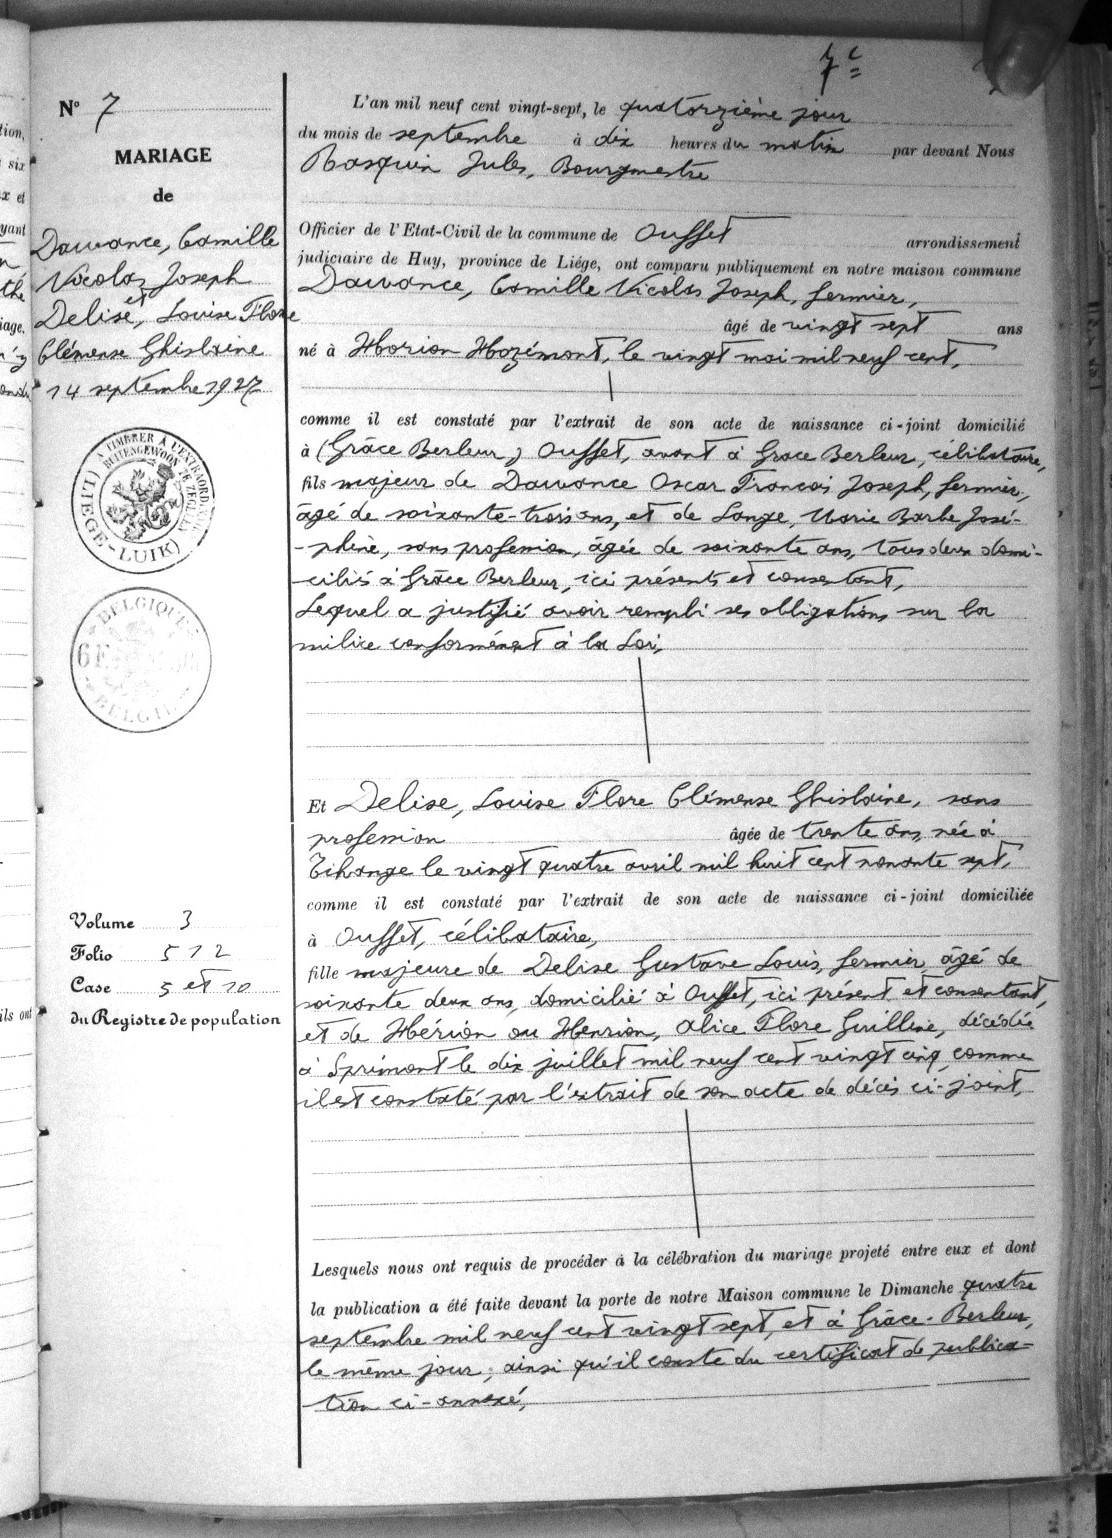 7e
N° 7
MARIAGE
de
Dawance, Camille
Nicolas Joseph
et
Delise, Louise Flore
Clémense Ghislaine
14 septembre 1927
A TIMBRER A L'EXTRAORD
BUITENGEWOON TE ZEGELEN
(LIEGE-LUIK)
BELGIQUE
BELGIË
Volume 3
Folio 512
Case 5 et 10
du Registre de population
L'an mil neuf cent vingt-sept, le quatorzième jour
du mois de septembre à dix heures du matin par devant Nous
Rasquin Jules, Bourgmestre
Officier de l'Etat-Civil de la commune de Ouffet arrondissement
judiciaire de Huy, province de Liége, ont comparu publiquement en notre maison commune
Dawance, Camille Nicolas Joseph, fermier,
âgé de vingt sept ans
né à Horion Hozémont, le vingt mai mil neuf cent,
comme il est constaté par l'extrait de son acte de naissance ci-joint domicilié
à (Grâce Berleur,) Ouffet, avant à Grace Berleur, célibataire,
fils majeur de Dawance Oscar François Joseph, fermier,
âgé de soixante-trois ans, et de Lange, Marie Barbe José-
-phine, sans profession, âgée de soixante ans, tous deux domi-
ciliés à Grâce Berleur, ici présents et consentant,
Lequel a justifié avoir rempli ses obligations sur la
milice conformément à la Loi,
Et Delise, Louise Flore Clémense Ghislaine, sans
profession âgée de trente ans, née à
Tihange le vingt quatre avril mil huit cent nonante sept,
comme il est constaté par l'extrait de son acte de naissance ci-joint domiciliée
à Ouffet, célibataire,
fille majeure de Delise Gustave Louis, fermier, âgé de
soixante deux ans, domicilié à Ouffet, ici présent et consentant,
et de Hérion ou Henrion, Alice Flore Guilline, décédée
à Sprimont le dix juillet mil neuf cent vingt cinq, comme
il est constaté par l'extrait de son acte de décès ci-joint,
Lesquels nous ont requis de procéder à la célébration du mariage projeté entre eux et dont
la publication a été faite devant la porte de notre Maison commune le Dimanche quatre
septembre mil neuf cent vingt sept, et à Grâce-Berleur,
le même jour; ainsi qu'il conste du certificat de publica-
tion ci-annexé,